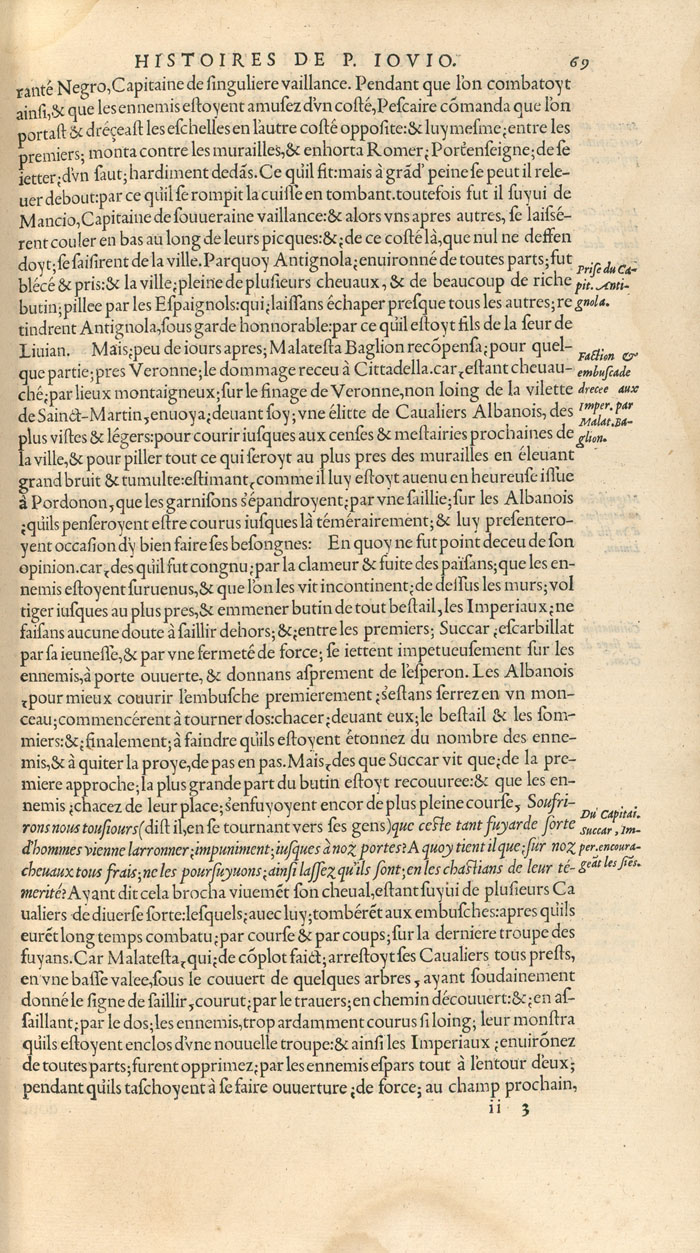 HISTOIRES DE P. IOVIO. 69
ranté Negro, Capitaine de ſinguliere vaillance. Pendant que l'on combatoyt
ainſi, & que les ennemis eſtoyent amuſez d'vn coſté, Peſcaire cõmanda que l'on
portaſt & dréçeaſt les eſchelles en l'autre coſté oppoſite: & luy meſme ¿ entre les
premiers; monta contre les murailles, & enhorta Romer ¿ Port'enſeigne; de ſe
ietter; d'vn ſaut; hardiment dedãs. Ce qu'il fit: mais à grãd' peine ſe peut il rele-
uer debout: par ce qu'il ſe rompit la cuiſſe en tombant. toutefois fut il ſuyui de
Mancio, Capitaine de ſouueraine vaillance: & alors vns apres autres, ſe laiſſé-
rent couler en bas au long de leurs picques: & ¿ de ce coſté là, que nul ne deffen
doyt; ſe ſaiſirent de la ville. Parquoy Antignola ¿ enuironné de toutes parts; fut
blécé & pris: & la ville ¿ pleine de pluſieurs cheuaux, & de beaucoup de riche
butin; pillee par les Eſpaignols: qui ¿ laiſſans échaper preſque tous les autres; re
tindrent Antignola, ſous garde honnorable: par ce qu'il eſtoyt fils de la ſeur de
Liuian. Mais ¿ peu de iours apres; Malateſta Baglion recõpenſa ¿ pour quel-
que partie; pres Veronne; le dommage receu à Cittadella. car ¿ eſtant cheuau-
ché ¿ par lieux montaigneux; ſur le finage de Veronne, non loing de la vilette
de Sainct-Martin, enuoya ¿ deuant ſoy; vne élitte de Caualiers Albanois, des
plus viſtes & légers: pour courir iuſques aux cenſes & meſtairies prochaines de
la ville, & pour piller tout ce qui ſeroyt au plus pres des murailles en éleuant
grand bruit & tumulte: eſtimant ¿ comme il luy eſtoyt auenu en heureuſe iſſue
à Pordonon, que les garniſons s'épandroyent ¿ par vne ſaillie; ſur les Albanois
¿ qu'ils penſeroyent eſtre courus iuſques là témérairement; & luy preſentero-
yent occaſion d'y bien faire ſes beſongnes: En quoy ne fut point deceu de ſon
opinion. car ¿ des qu'il fut congnu ¿ par la clameur & fuite des païſans; que les en-
nemis eſtoyent ſuruenus, & que l'on les vit incontinent ¿ de deſſus les murs; vol
tiger iuſques au plus pres, & emmener butin de tout beſtail, les Imperiaux ¿ ne
faiſans aucune doute à ſaillir dehors; & ¿ entre les premiers; Succar ¿ eſcarbillat
par ſa ieuneſſe, & par vne fermeté de force; ſe iettent impetueuſement ſur les
ennemis, à porte ouuerte, & donnans aſprement de l'eſperon. Les Albanois
¿ pour mieux couurir l'embuſche premierement ¿ s'eſtans ſerrez en vn mon-
ceau; commencérent à tourner dos: chacer ¿ deuant eux; le beſtail & les ſom-
miers: & ¿ finalement; à faindre qu'ils eſtoyent étonnez du nombre des enne-
mis, & à quiter la proye, de pas en pas. Mais ¿ des que Succar vit que ¿ de la pre-
miere approche; la plus grande part du butin eſtoyt recouuree: & que les en-
nemis ¿ chacez de leur place; s'enfuyoyent encor de plus pleine courſe, Souffri-
rons nous touſiours (diſt il, en ſe tournant vers ſes gens) que ceſte tant fuyarde ſorte
d'hommes vienne larronner ¿ impuniment; iuſques à noz portes? A quoy tient il que ¿ ſur noz
cheuaux tous frais; ne les pourſuyuons ¿ ainſi laſſez qu'ils ſont; en les chaſtians de leur té-
merité? Ayant dit cela brocha viuemẽt ſon cheual, eſtant ſuyui de pluſieurs Ca
ualiers de diuerſe ſorte: leſquels ¿ auec luy; tombérẽt aux embuſches: apres qu'ils
eurẽt long temps combatu ¿ par courſe & par coups; ſur la derniere troupe des
fuyans. Car Malateſta ¿ qui ¿ de cõplot faict; arreſtoyt ſes Caualiers tous preſts,
en vne baſſe valee, ſous le couuert de quelques arbres, ayant ſoudainement
donné le ſigne de ſaillir, courut ¿ par le trauers; en chemin découuert: & ¿ en aſ-
ſaillant ¿ par le dos; les ennemis, trop ardamment courus ſi loing; leur monſtra
qu'ils eſtoyent enclos d'vne nouuelle troupe: & ainſi les Imperiaux ¿ enuirõnez
de toutes parts; furent opprimez ¿ par les ennemis eſpars tout à l'entour d'eux;
pendant qu'ils taſchoyent à ſe faire ouuerture ¿ de force; au champ prochain,
ii 3
Priſe du Ca-
pit. Anti-
gnola.
Faction &
embuſcade
drecee aux
Imper. par
Malat. Ba-
glion.
Du Capitai.
Succar, Im-
per. encoura-
geãt les ſiẽs.